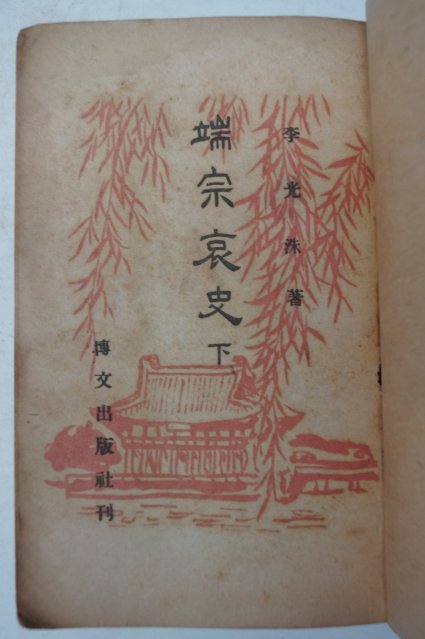 李光洙著
端宗哀史 下
博文出版社刊